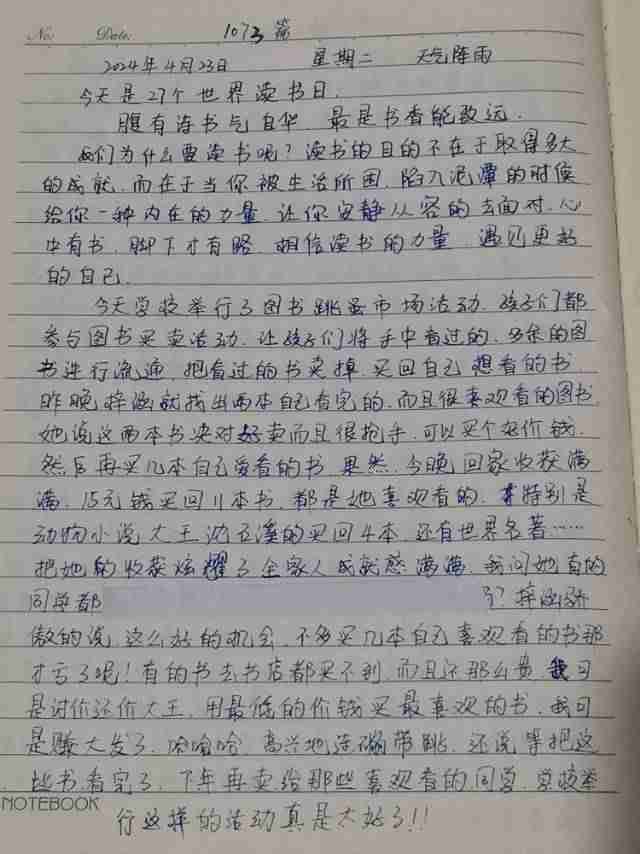 No: Date: 1073篇
2024年4月23日 星期二 天气阵雨
今天是27个世界读书日.
腹有诗书气自华 最是书香能致远.
我们为什么要读书呢?读书的目的不在于取得多大
的成就.而在于当你被生活所困,陷入泥潭的时候
给你一种内在的力量.让你安静从容的去面对.心
中有书.脚下才有路.相信读书的力量.遇见更好
的自己.
今天学校举行了图书跳蚤市场活动.孩子们都
参与图书买卖活动.让孩子们将手中看过的.多余的图
书进行流通.把看过的书卖掉 买回自己想看的书.
昨晚梓涵就找出两本自己看完的.而且很喜欢看的图书
她说这两本书决对好卖而且很抢手.可以买个好价钱.
然后再买几本自己爱看的书 果然.今晚回家收获满
满.15元钱买回11本书.都是她喜观看的.特别是
动物小说大王沈石溪的买回4本.还有世界名著……
把她的收获炫耀了全家人成就感满满.我问她有的
同学都 了?梓涵骄
傲的说.这么好的机会.不多买几本自己喜观看的书那
才亏了呢!有的书去书店都买不到.而且还那么贵.我可
是讨价还价大王.用最低的价钱买最喜欢的书.我可
是赚大发了.哈哈哈.高兴地连蹦带跳.还说等把这
些书看完了.下年再卖给那些喜观看的同学.学校举
行这样的活动真是太好了!!
NOTEBOOK